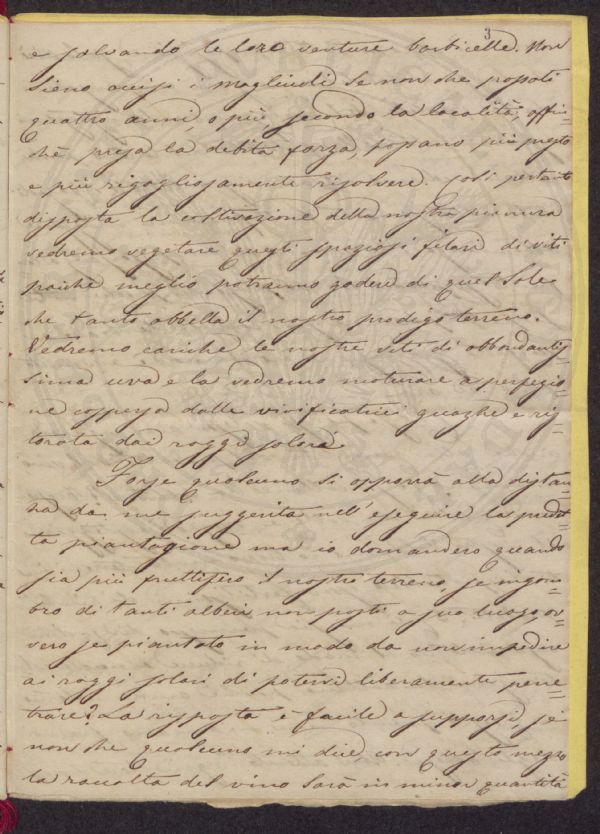 3
e salvando le loro venture barbicelle. Non
sieno recisi i magliuoli se non che passati
quattro anni, o più, secondo la località, affin=
chè presa la debita forza, possano più presto
e più rigogliosamente risolvere. Così pertanto
disposta la coltivazione della nostra pianura
vedremo vegetare questi spaziosi filari di viti
poiche meglio potranno godere di quel Sole
che tanto abbella il nostro prodigo terreno.
Vedremo cariche le nostre viti di abbondantis=
sima uva e la vedremo maturare a perfezio=
ne cospersa dalle vivificatrici guazze e ris=
torata dai raggi solari.
Forse qualcuno si opporrà alla distan=
za da me suggerita nell'eseguire la predet=
ta piantagione ma io domanderò quando
sia più fruttifero il nostro terreno, se ingom=
bro di tanti alberi non posti a suo luogo, ov=
vero se piantato in modo da non impedire
ai raggi solari di potersi liberamente pene=
trare? La risposta è facile a supporsi, se
non che qualcuno mi dice con questo mezzo
la raccolta del vino sarà in minor quantità